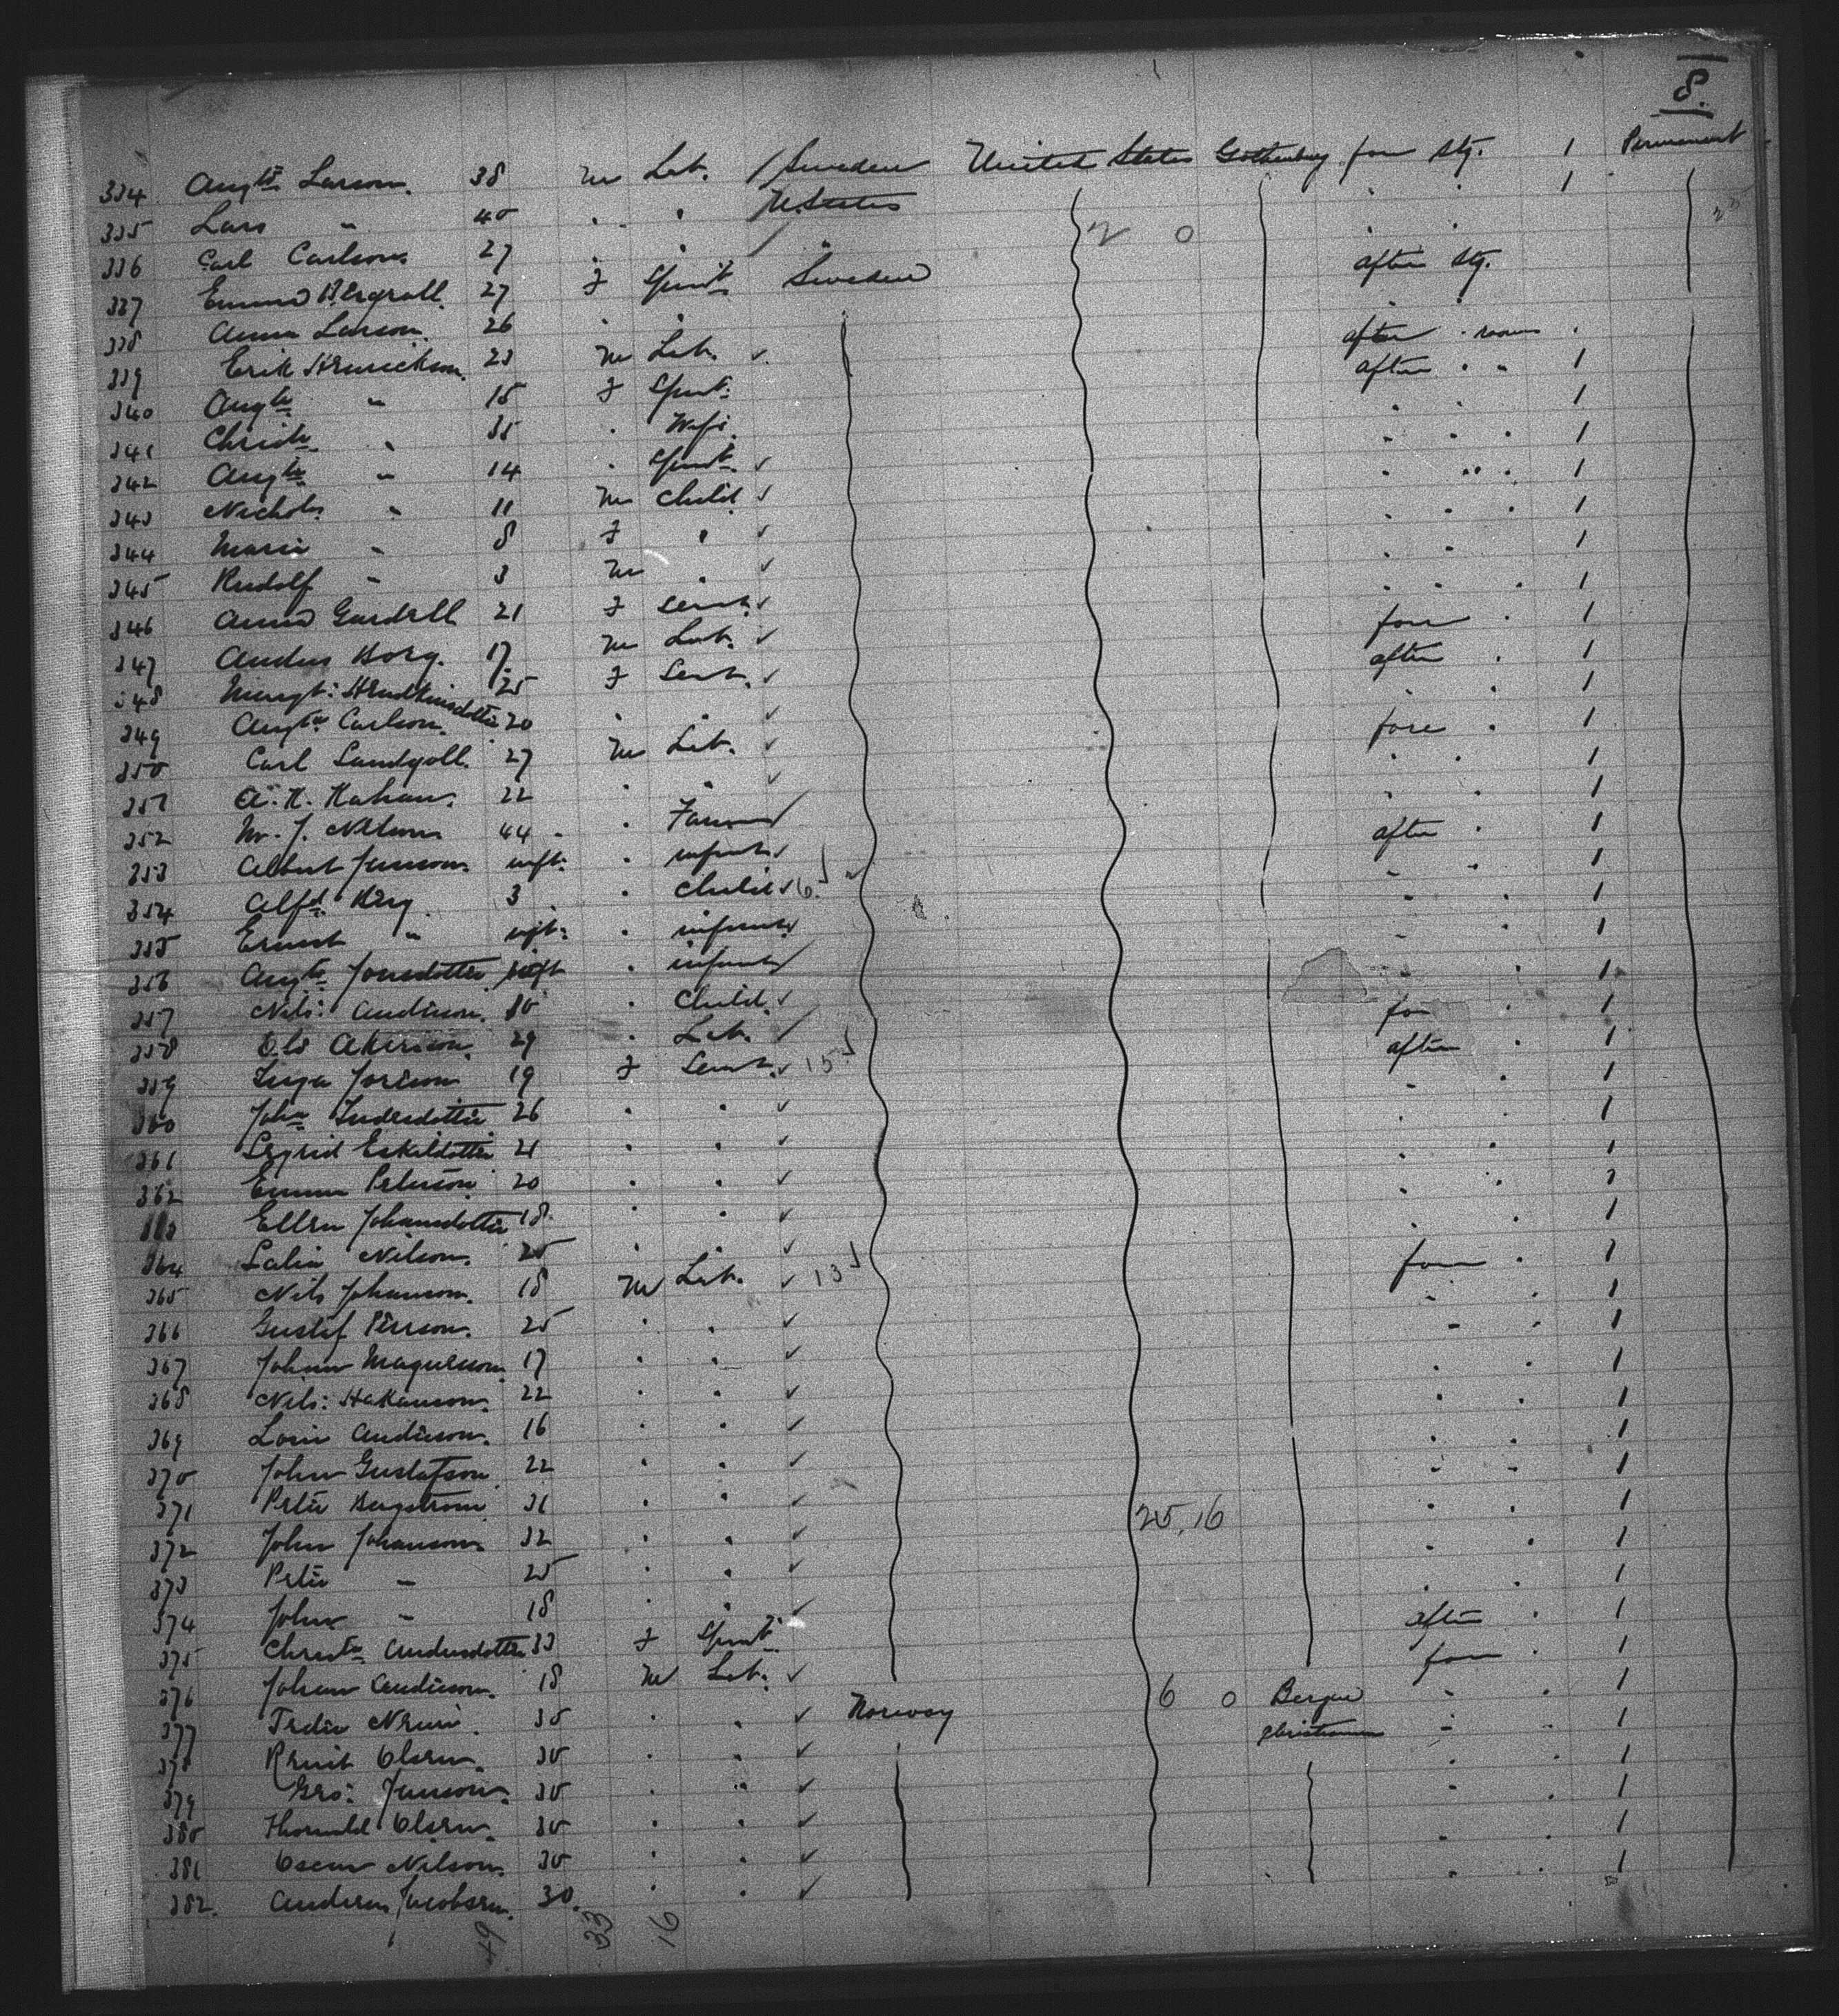 8.
334 Augta Larson. 38 m Lab. / Sweden United States Gothenburg fore Stg. 1 Permanent
335 Lars " 40 . . U. States . . 1
336 Carl Carlson. 27 . . 2 0 . .
337 Emma 27 f Spinst. Sweden after Stg.
338 Anna Larson. 26 . . . .
339 Erik Henrickson. 23 m Lab. ✓ after . room .
340 Augta " 15 f Spinst. after . " 1
341 Christa " 35 . Wife. . . 1
342 Augta " 14 . Spinst. ✓ . . . 1
343 Nichols. " 11 m Child ✓ . . . 1
344 Maria " 8 f . ✓ . . . 1
345 Rudolf " 3 m . ✓ . . 1
346 Anna Gardell 21 f Servt. ✓ . . . 1
347 Andus Borg. 17 m Lab. ✓ fore . 1
348 25 f Servt. ✓ after . 1
349 Augta Carlson. 20 . . ✓ . . 1
350 Carl 27 m Lab. ✓ fore . 1
351 A. K. 22 . . ✓ . . 1
352 J. Nilson 44 . . Farmer ✓ . . 1
353 Albert Jansson. inft. . infant ✓ after . 1
354 Alfd Berg. 3 . Child ✓ 6 . . 1
355 Ernest " inft. . infant ✓ . . 1
356 Augta Jonsdotter inft . infant ✓ . . 1
357 Nils: Andreson. 10 . Child. ✓ . . 1
358 Ola Akerson. 29 . Lab. ✓ fore . 1
359 Inga 19 f Servt. ✓ 15 after . 1
360 Joha 26 . . ✓ . . 1
361 Segrid Eskildotter 21 . . ✓ . . 1
362 Emma Peterson 20 . . ✓ . . 1
363 Ellen Johansdotter 18. . . ✓ . . 1
364 Nilson. 25 . . ✓ . . 1
365 Nils Johanson. 18 m Lab. ✓ 13 fore . 1
366 Gustaf Person. 25 . . ✓ . . 1
367 Johan Magneson. 17 . . ✓ . . 1
368 Nils: Hakanson. 22 . . ✓ . . 1
369 Andreson. 16 . . ✓ . . 1
370 John Gustafson 22 . . ✓ . . 1
371 Peter Bergstrom 31 . . ✓ . . 1
372 John Johanson. 32 . . ✓ 25, 16 . . 1
373 Peter " 25 . . ✓ . . 1
374 John " 18 . . ✓ . . 1
375 Christa Andersdotter 33 f Spinst. after . 1
376 Johan Andreson. 18 m Lab. ✓ fore . 1
377 35 . . ✓ Norway 6 0 Bergen . . 1
378 Olsen. 30 . . ✓ Christiania . . 1
379 Geo: Janson. 30 . . ✓ . . 1
380 Thorwald Olsen. 30 . . ✓ . . 1
381 Oscar Nilson. 30 . . ✓ . . 1
382. Andreas Jacobsen. 30. . . ✓ . . 1
49 33 16